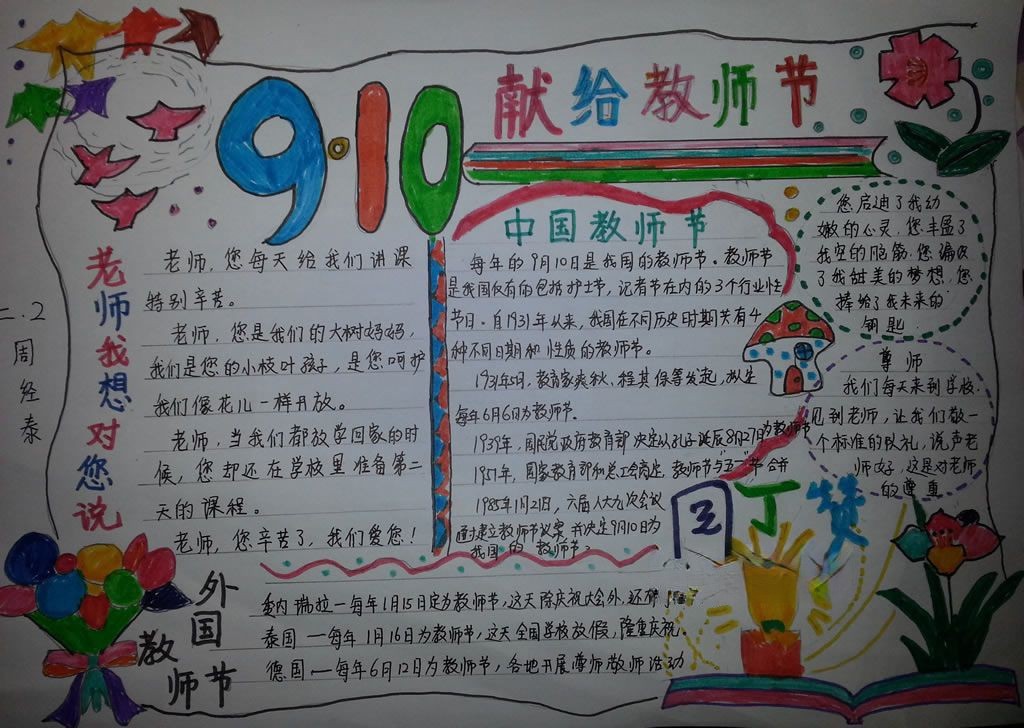 9·10
献给教师节
二.2
周经泰
老师我想对您说
老师,您每天给我们讲课
特别辛苦。
老师,您是我们的大树妈妈,
我们是您的小枝叶孩子,是您呵护
我们像花儿一样开放。
老师,当我们都放学回家的时
候,您却还在学校里准备第二
天的课程。
老师,您辛苦了,我们爱您!
中国教师节
每年的9月10日是我国的教师节。教师节
是我国仅有的包括护士节,记者节在内的3个行业性
节日。自1931年以来,我国在不同历史时期共有4
种不同日期和性质的教师节。
1931年5月,教育家爽秋、程其保等发起,拟定
每年6月6日为教师节。
1939年,国民党政府教育部决定从孔子诞辰8月27日为教师节
1951年,国家教育部和总工会商定,教师节与五一节合并
1985年1月21日,六届人大九次会议
通过建立教师节议案,并决定9月10日为
我国的教师节。
您启迪了我幼
嫩的心灵,您丰盈了
我空的脑筋,您
了我甜美的梦想,您
捧给了我未来的
钥匙.
尊师
我们每天来到学校,
见到老师,让我们敬一
个标准的队礼,说声老
师好,这是对老师
的尊重
园丁赞
外国教师节
委内瑞拉一每年1月15日定为教师节,这天除庆祝大会外,还
泰国一每年1月16日为教师节,这天全国学校放假,隆重庆祝.
德国一每年6月12日为教师节,各地开展尊师教师活动